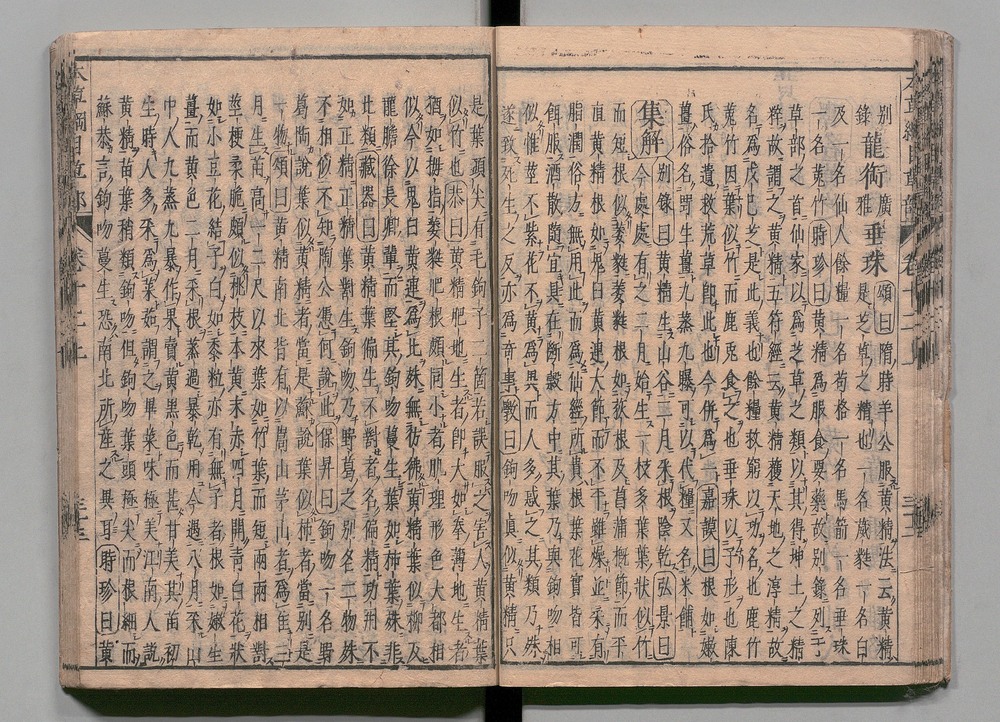 別錄龍銜廣雅垂珠頌曰隋時羊公服黃精法云黃精是芝草之精也一名葳蕤一名白
及一名仙人餘糧一名苟格一名馬箭一名垂珠
一名菟竹時珍曰黃精為服食要藥故別錄列于
草部之首仙家以為芝草之類以其得坤土之精
粹故謂之黃精五符經云黃精獲天地之淳精故
名為戊己芝是此義也餘糧救窮以功名也鹿竹
菟竹因葉似竹而鹿兔食之也垂珠以子形也陳
氏拾遺救荒草即此也今併為一嘉謨曰根如嫩
薑俗名野生薑九蒸九曝可以代糧又名米餔
集解別錄曰黃精生山谷二月采根陰乾弘景曰
今處處有之二月始生一枝多葉葉狀似竹
而短根似萎蕤萎蕤根如荻根及菖蒲概節而平
直黃精根如鬼臼黃連大節而不平雖燥並柔有
脂潤俗方無用此而為仙經所貴根葉花實皆可
餌服酒散隨宜具在斷穀方中其葉乃與鉤吻相
似惟莖不紫花不黃為異而人多惑之其類乃殊
遂致死生之反亦為奇事斅曰鉤吻真似黃精只
是葉頭尖有毛鉤子二箇若誤服之害人黃精葉
似竹也恭曰黃精肥地生者即大如拳薄地生者
猶如拇指萎蕤肥根頗同小者肌理形色大都相
似今以鬼臼黃連為比殊無彷彿黃精葉似柳及
龍膽徐長卿輩而堅其鉤吻蔓生葉如柿葉殊非
比類藏器曰黃精葉偏生不對者名偏精功用不
如正精正精葉對生鉤吻乃野葛之別名二物殊
不相似不知陶公憑何說此保昇曰鉤吻一名野
葛陶說葉似黃精者當是蘇說葉似柿者當別是
一物頌曰黃精南北皆有以嵩山茅山者為佳三
月生苗高一二尺以來葉如竹葉而短兩兩相對
莖梗柔脆頗似桃枝本黃末赤四月開青白花狀
如小豆花結子白如黍粒亦有無子者根如嫩生
薑而黃色二月采根蒸過暴乾用今過八月采山
中人九蒸九暴作果賣黃黑色而甚甘美其苗初
生時人多采為菜茹謂之畢菜味極美江南人說
黃精苗葉稍類鉤吻但鉤吻葉頭極尖而根細而
蘇恭言鉤吻蔓生恐南北所產之異耳時珍曰黃